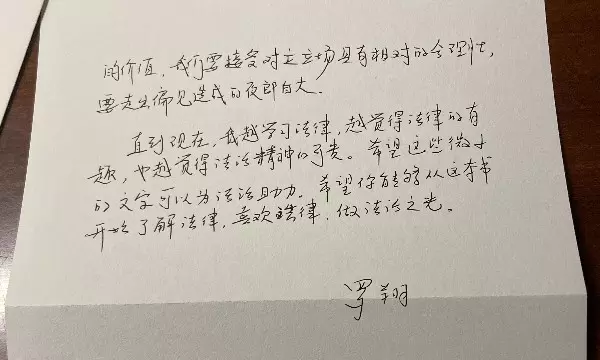 的价值，我们要接受对立立场具有相对的合理性，
要走出偏见造成的夜郎自大。
直到现在，我越学习法律，越觉得法律的有
趣，也越觉得法治精神的可贵。希望这些微小
的文字可以为法治助力，希望你能够从这本书
开始了解法律，喜欢法律，做法治之光。
罗翔